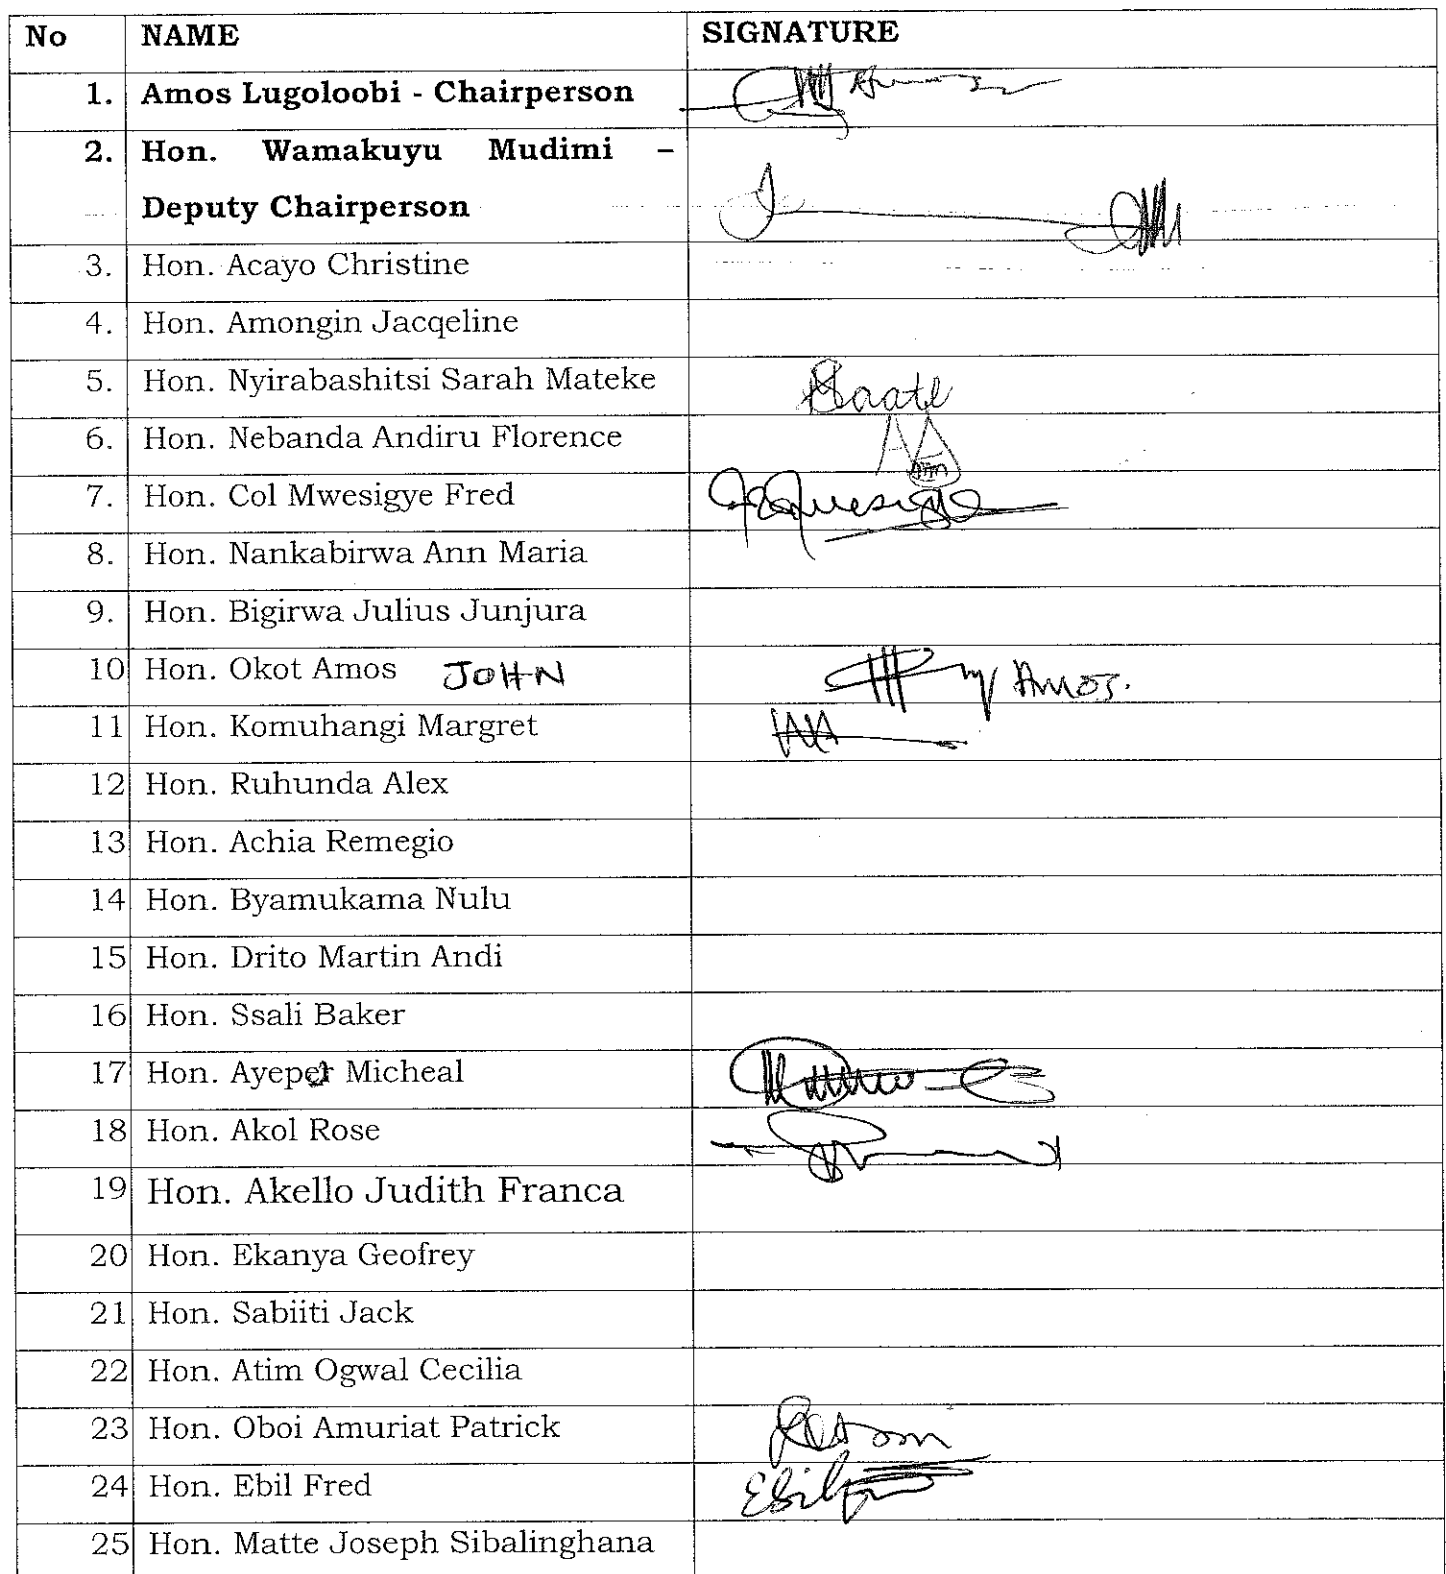 No NAME SIGNATURE
1. Amos Lugoloobi - Chairperson
2. Hon. Wamakuyu Mudimi –
Deputy Chairperson
3. Hon. Acayo Christine
4. Hon. Amongin Jacqeline
5. Hon. Nyirabashitsi Sarah Mateke
6. Hon. Nebanda Andiru Florence
7. Hon. Col Mwesigye Fred
8. Hon. Nankabirwa Ann Maria
9. Hon. Bigirwa Julius Junjura
10 Hon. Okot Amos JOHN Amos.
11 Hon. Komuhangi Margret
12 Hon. Ruhunda Alex
13 Hon. Achia Remegio
14 Hon. Byamukama Nulu
15 Hon. Drito Martin Andi
16 Hon. Ssali Baker
17 Hon. Ayeper Micheal
18 Hon. Akol Rose
19 Hon. Akello Judith Franca
20 Hon. Ekanya Geofrey
21 Hon. Sabiiti Jack
22 Hon. Atim Ogwal Cecilia
23 Hon. Oboi Amuriat Patrick
24 Hon. Ebil Fred
25 Hon. Matte Joseph Sibalinghana